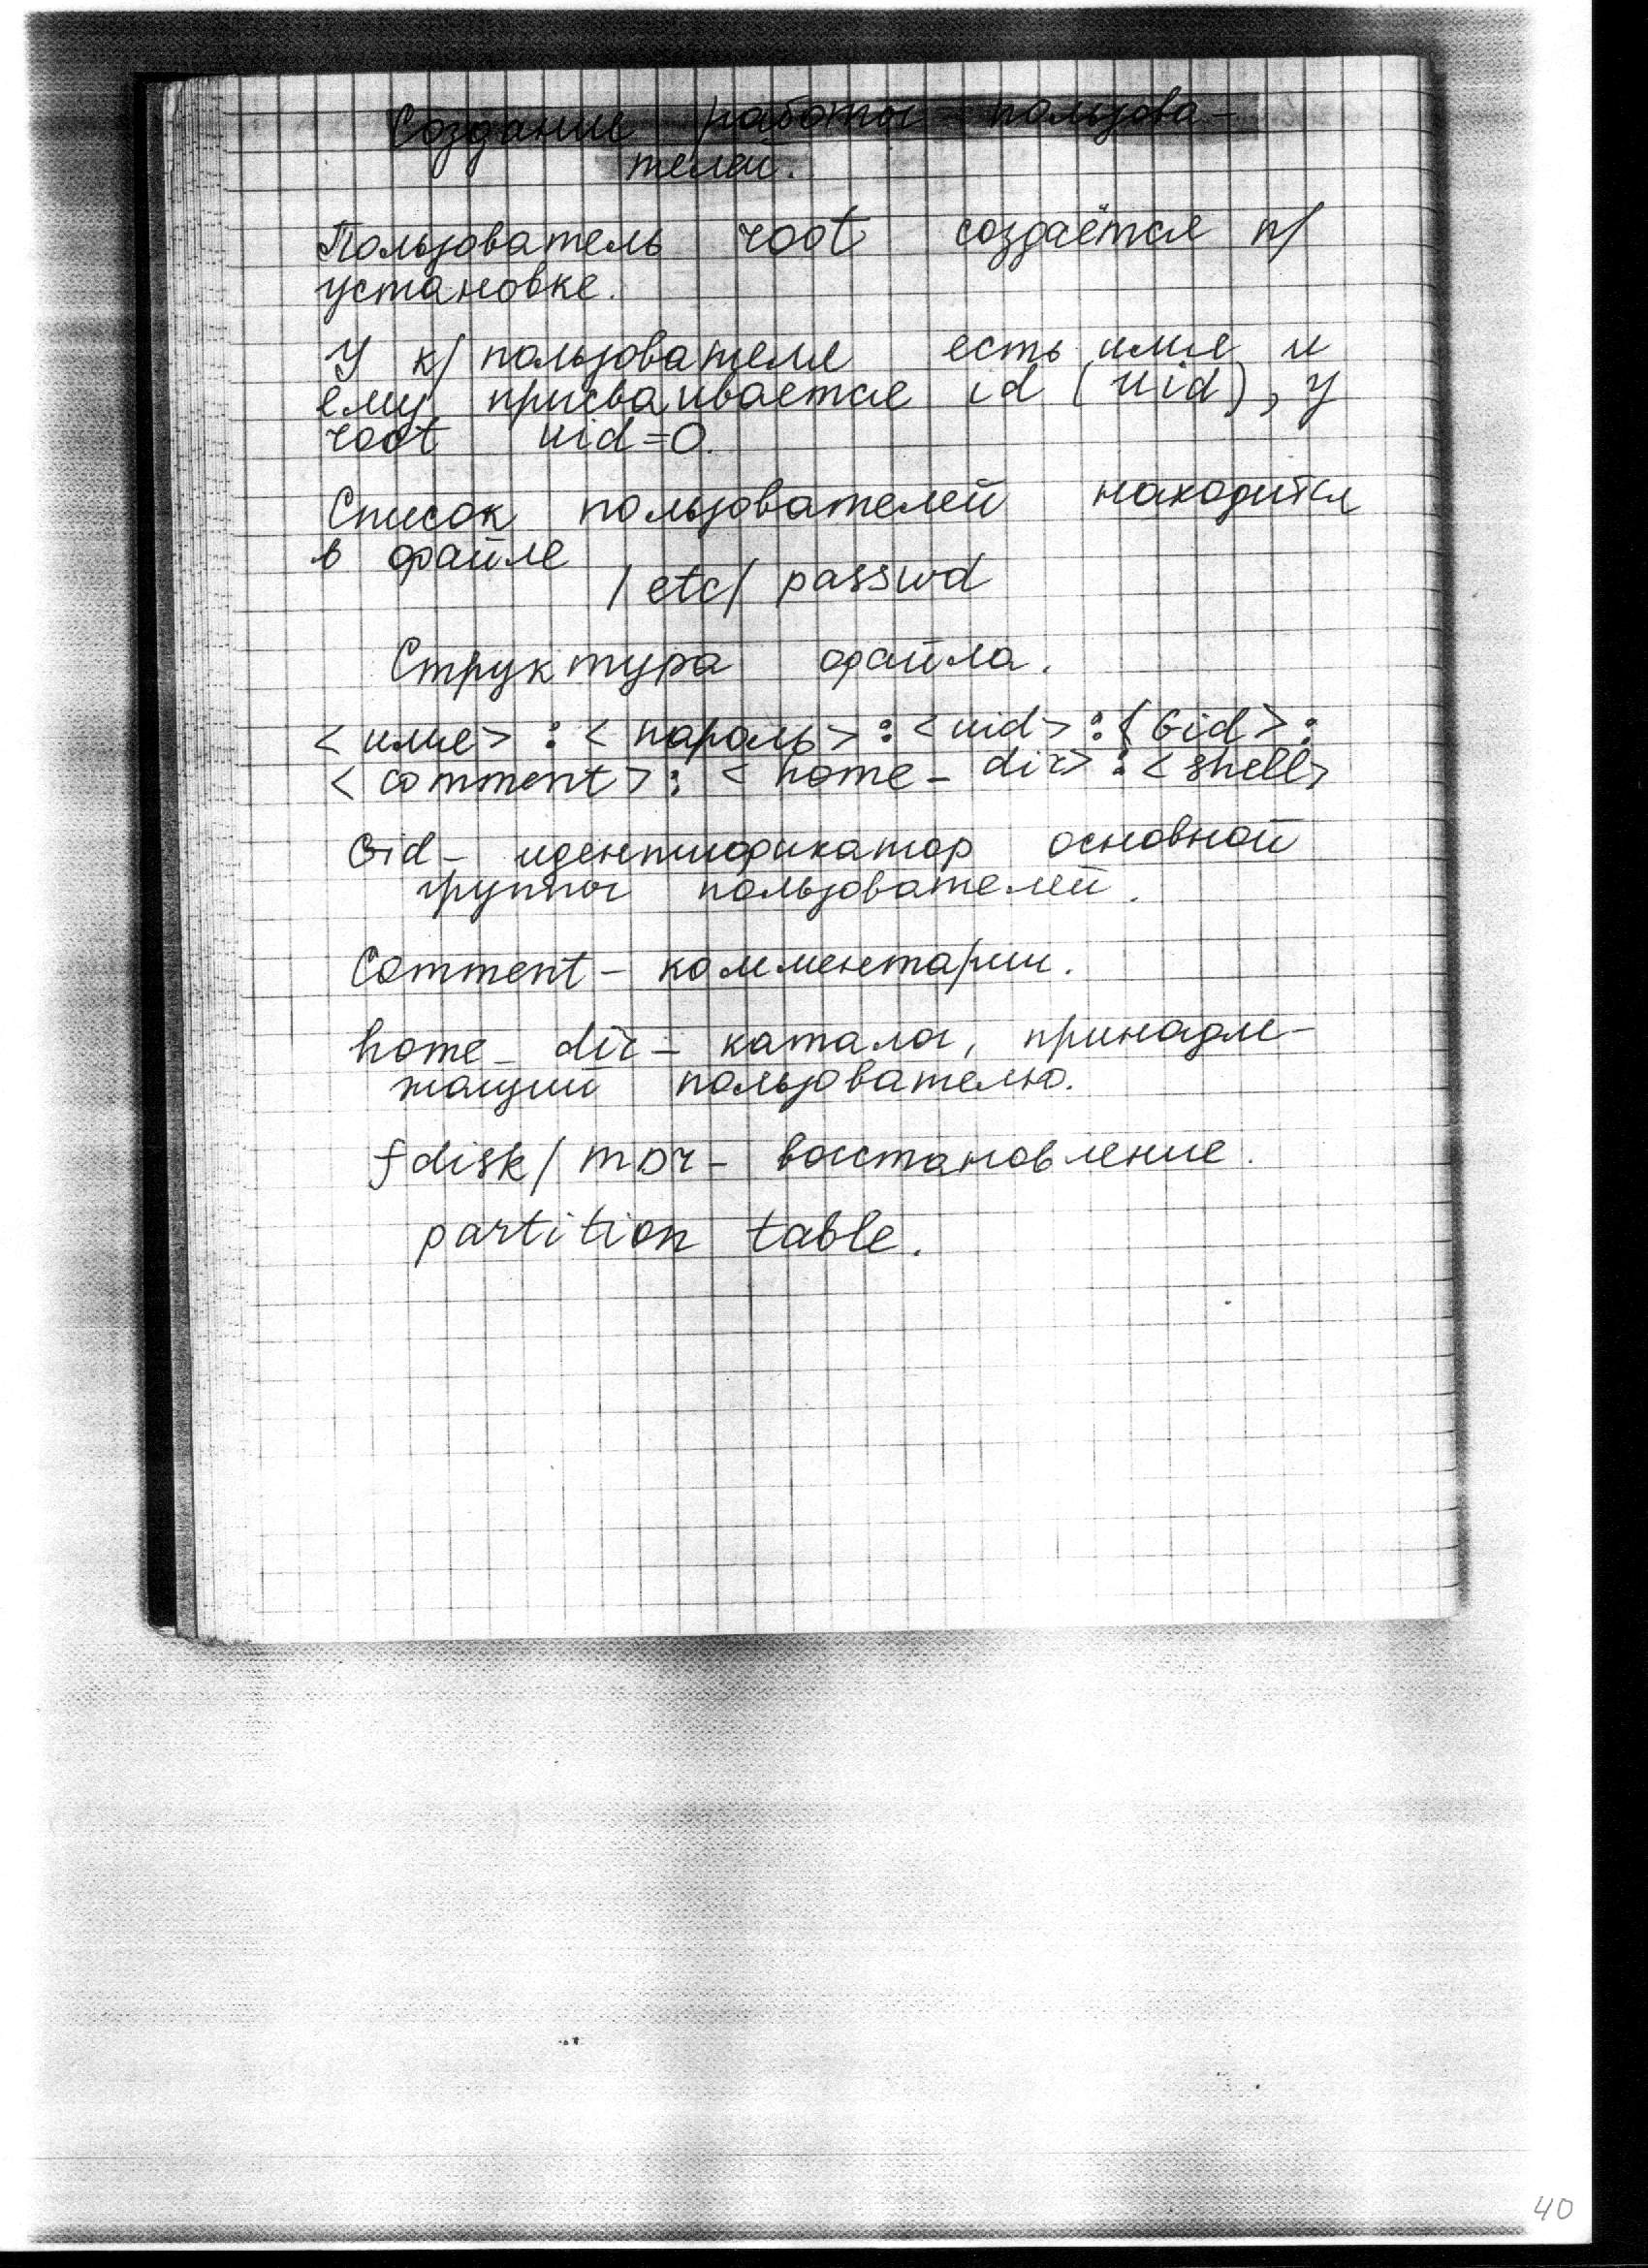 Создание работы пользова-
телей.
Пользователь root создаётся п/
установке.
У к/ пользователя есть имя и
ему присваивается id (uid), у
root uid=0.
Список пользователей находится
в файле
/etc/ passwd
Структура файла.
<имя> : < пароль> : <uid> : <Gid> :
<comment> : < home - dir> : <shell>
Gid - идентификатор основной
группы пользователей.
Comment - комментарии.
home - dir - каталог, принадле-
жащий пользователю.
fdisk/ mbr - восстановление.
partition table.
40